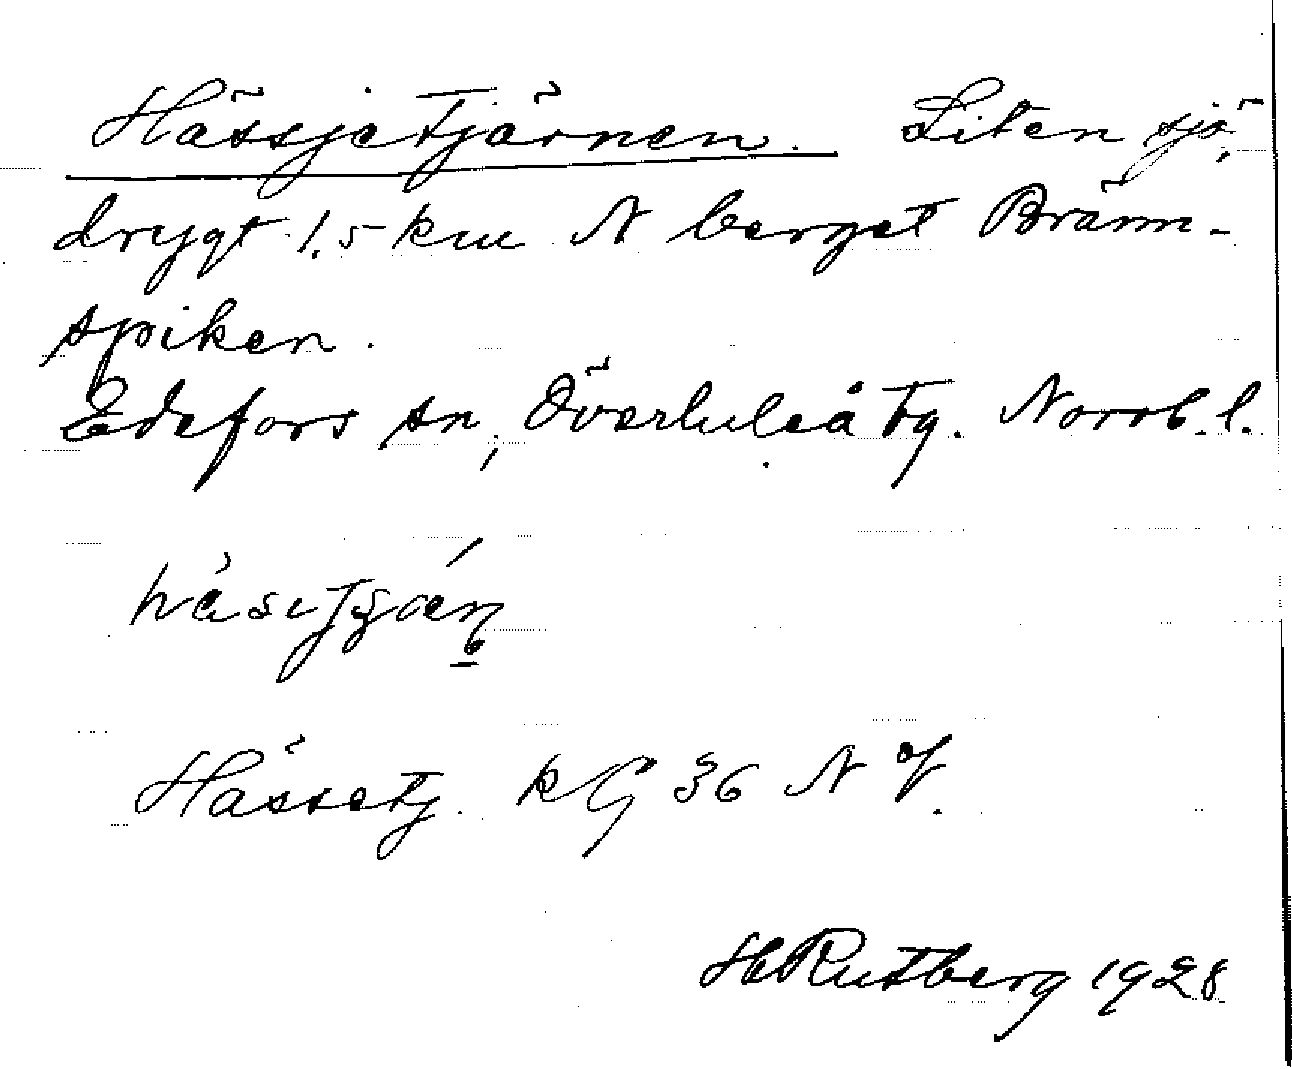 Hässjetjärnen. Liten sjö,
drygt 1,5 km N berget Bränn-
spiken.
Edefors sn, Överluleå tg. Norrb. l.
Hässetj. k G 36 N V.
H Rutberg 1928